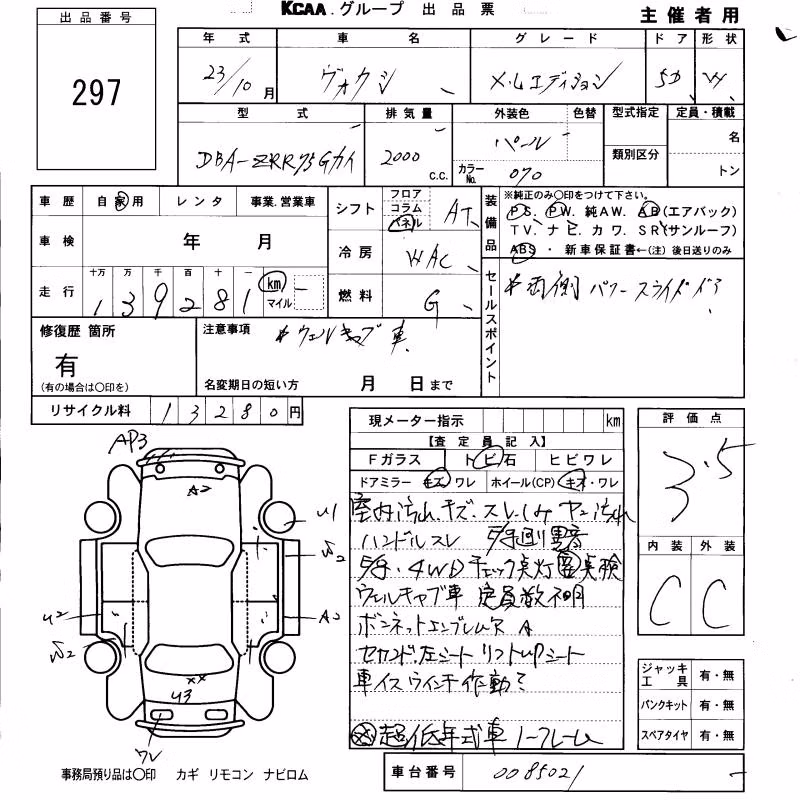 KCAA.グループ 出品票
主催者用
出品番号
297
年式 車名 グレード ドア 形状
23/10月 ヴォクシー X・Lエディション 5D W
型式 排気量 外装色 色替 型式指定 定員・積載
DBA-ZRR75Gカイ 2000 c.c. パール 名
カラーNo. 070 類別区分 トン
車歴 自家用 レンタ 事業.営業車
シフト フロア コラム パネル AT
装備品
※純正のみ○印をつけて下さい。
PS. PW. 純AW. AB(エアバック)
TV. ナビ. カワ. SR(サンルーフ)
ABS・新車保証書←(注) 後日送りのみ
車検 年 月
冷房 WAC
走行 十万 万 千 百 十 一
139281 km マイル
燃料 G
セールスポイント
*両側パワースライドドア
修復歴 箇所
有
(有の場合は○印を)
注意事項 *ウェルキャブ車
名変期日の短い方 月 日まで
リサイクル料 13280円
現メーター指示 km
【査定員記入】
Fガラス トビ石 ヒビワレ
ドアミラー キズ ワレ ホイール(CP) キズ・ワレ
室内汚れ.キズ.スレ.しみ ヤニ汚れ
ハンドルスレ
4WDチェック点灯 要点検
ウェルキャブ車 定員数不明
ボンネットエンブレム
セカンド.左シート リフトUPシート
車イスウインチ作動?
超低年式車
評価点
3.5
内装 外装
C C
ジャッキ 工具 有・無
パンクキット 有・無
スペアタイヤ 有・無
AP3
A2
U1
U2
A2
U3
ワレ
事務局預り品は○印 カギ リモコン ナビロム
車台番号 0085021